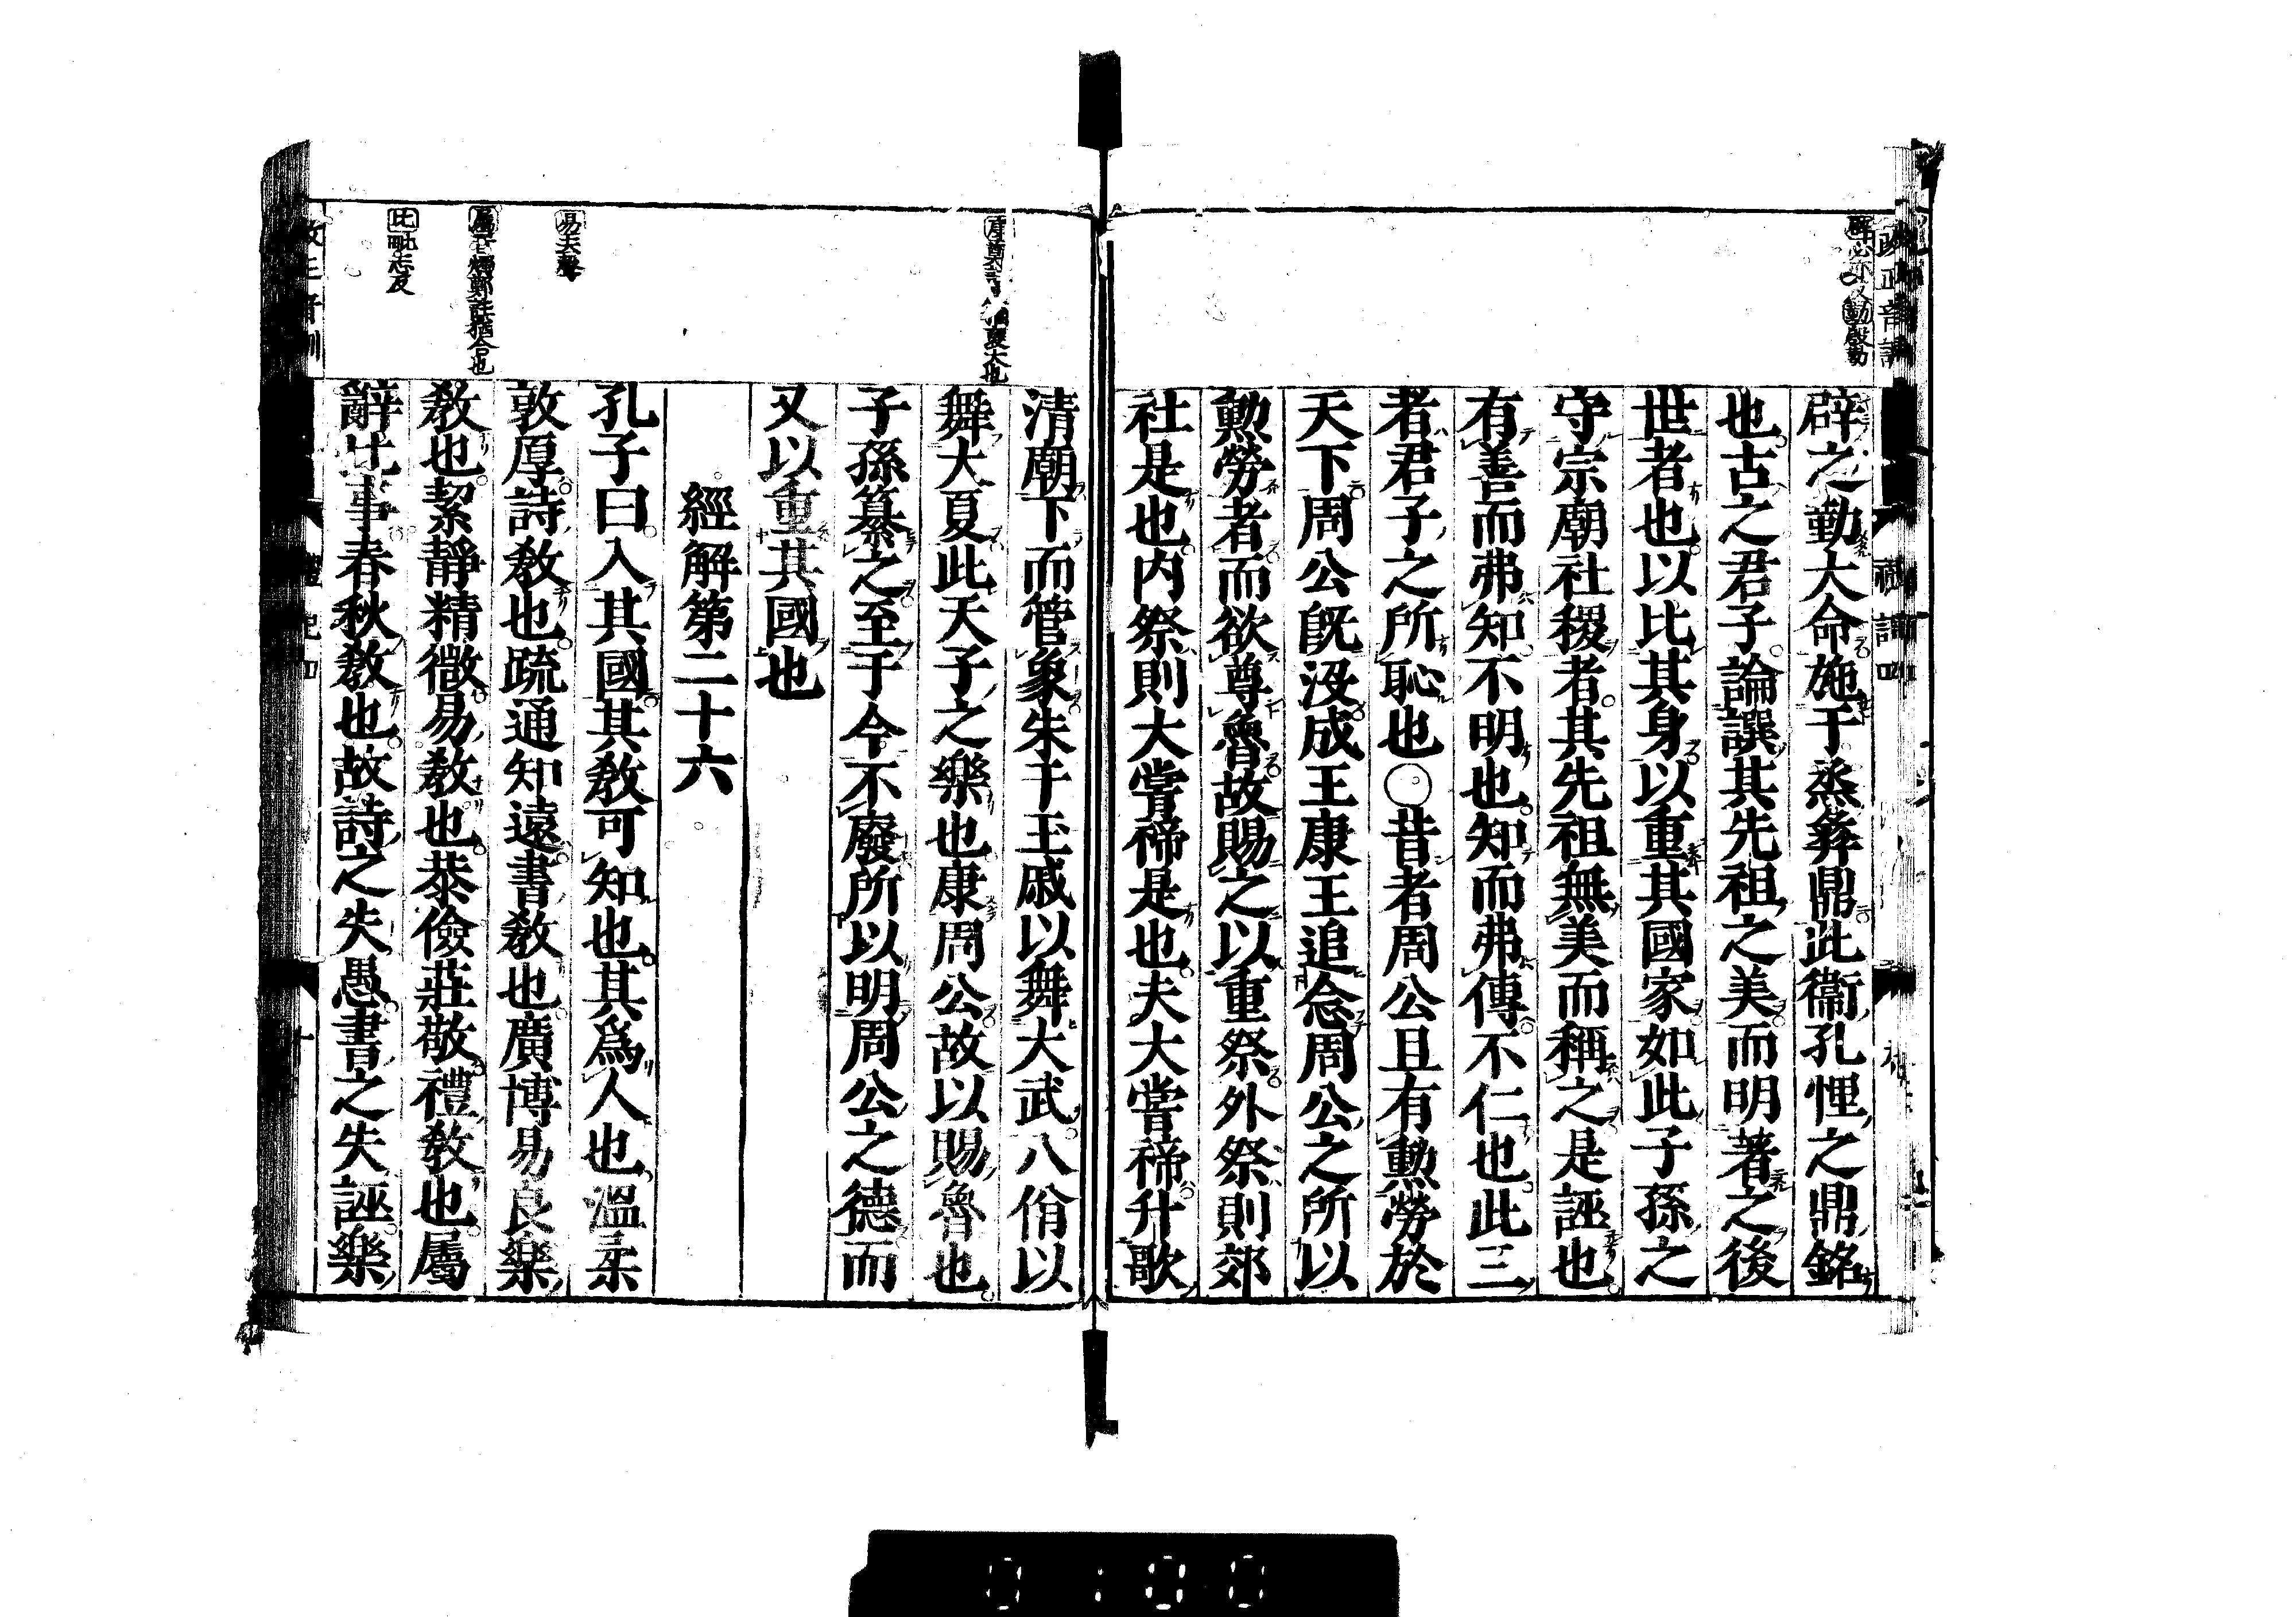 辟之勤大命施于烝彝鼎此衞孔悝之鼎銘
也古之君子論譔其先祖之美而明著之後
世者也以比其身以重其國家如此子孫之
守宗廟社稷者其先祖無美而稱之是誣也
有善而弗知不明也知而弗傳不仁也此三
者君子之所恥也〇昔者周公旦有勲勞於
天下周公既沒成王康王追念周公之所以
勲勞者而欲尊魯故賜之以重祭外祭則郊
社是也内祭則大嘗禘是也夫大嘗禘升歌
康
猶襃大也
清廟下而管象朱干玉戚以舞大武八佾以
舞大夏此天子之樂也康周公故以賜魯也
子孫纂之至于今不廢所以明周公之德而
又以重其國也
經解第二十六
易去聲
屬音燭鄭註猶合也
比毗志反
孔子曰入其國其敎可知也其爲人也溫柔
敦厚詩敎也疏通知遠書敎也廣博易良樂
敎也絜靜精微易敎也恭儉莊敬禮敎也屬
辭比事春秋敎也故詩之失愚書之失誣樂